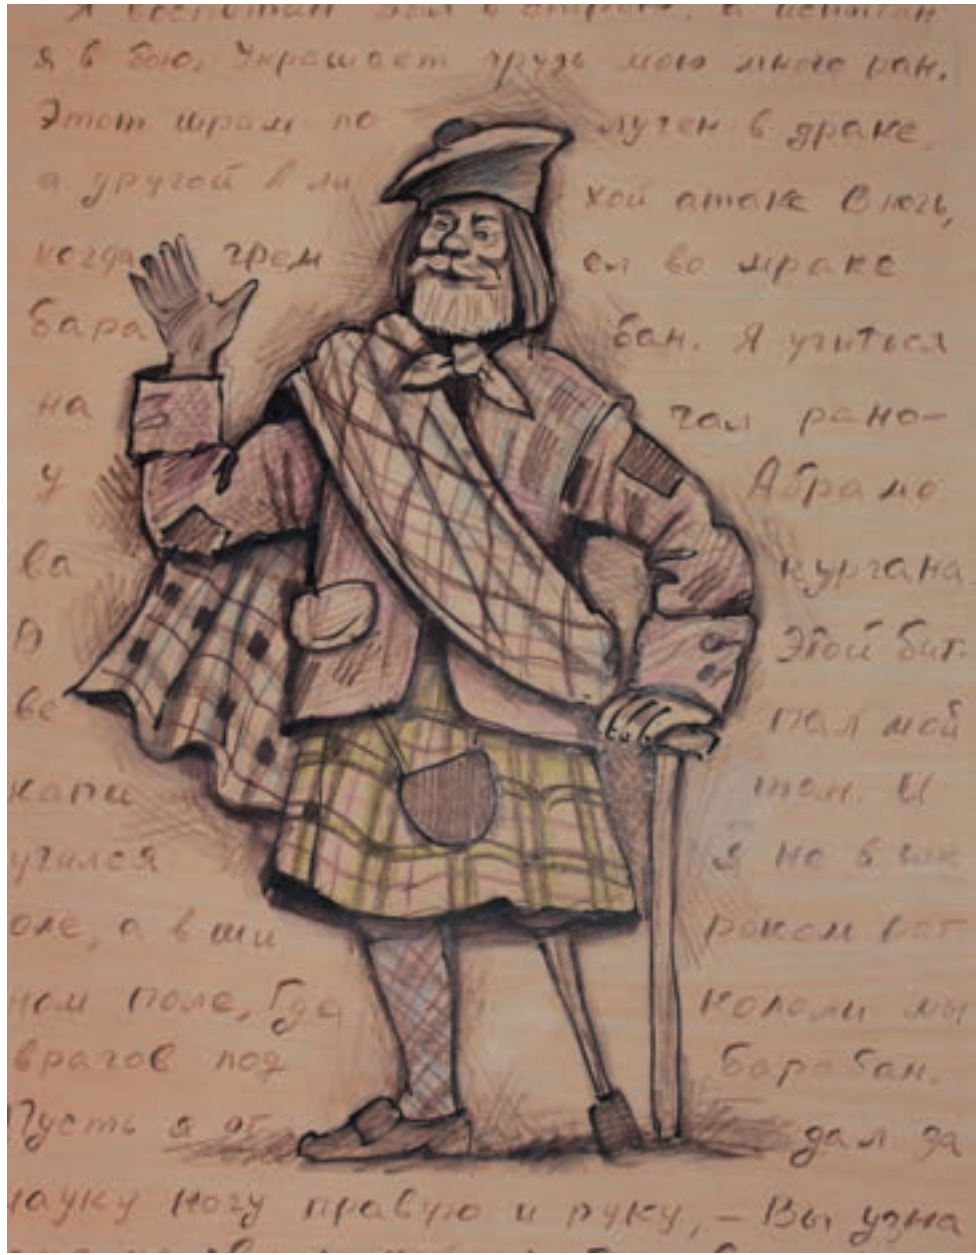 Я воспитан был в строю, а испытан
я в бою. Украшает грудь мою много ран.
Этот шрам по лучен в драке,
а другой в ли хой атаке В ночь,
когда грем ел во мраке
бара бан. Я учиться
на чал рано-
у Абрамо
ва кургана
В этой бит-
ве пал мой
капи тан. И
учился я не в шк
оле, а в ши роком рат
ном поле, Где кололи мы
врагов под барабан.
Пусть я от дал за
науку ногу правую и руку, - Вы узна